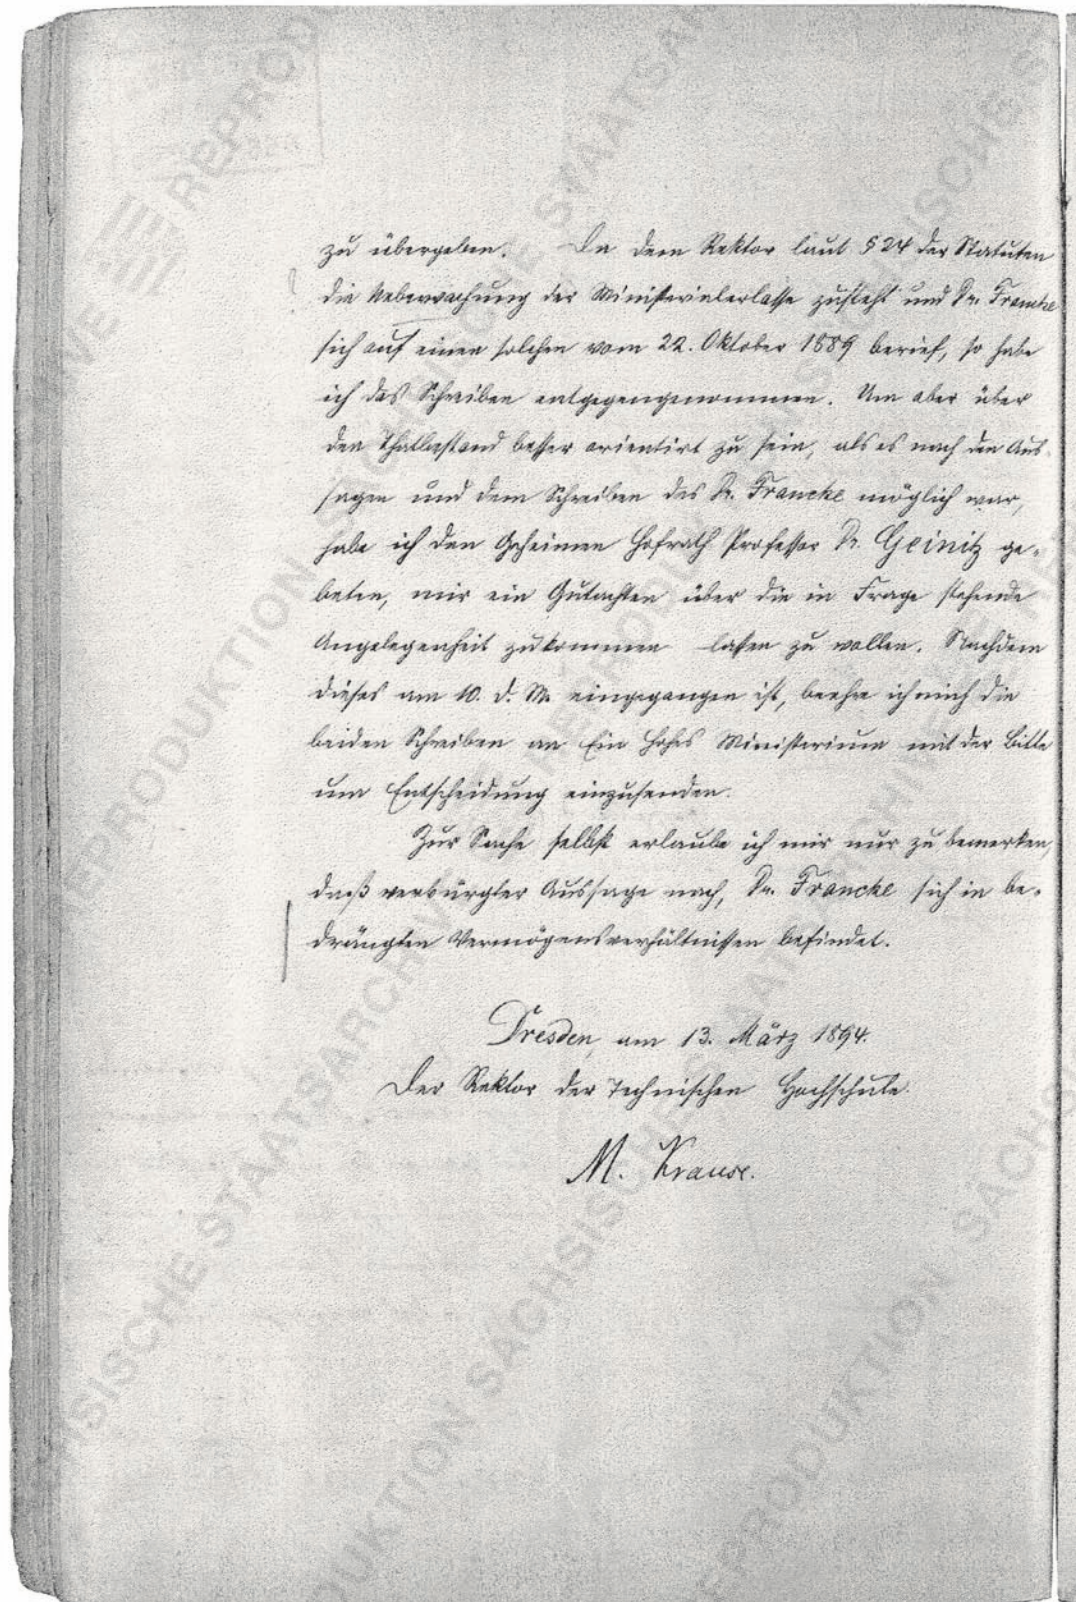 zu übergeben. Da dem Rektor laut § 24 der Statuten
die Ueberwachung der Ministerialerlasse zusteht und Dr. Francke
sich auf einen solchen vom 22. Oktober 1889 berief, so habe
ich das Schreiben entgegengenommen. Um aber über
den Thatbestand besser orientirt zu sein, als es nach den Aus-
sagen und dem Schreiben des Dr. Francke möglich war,
habe ich den Geheimen Hofrath Professor Dr. Geinitz ge-
beten, mir ein Gutachten über die in Frage stehende
Angelegenheit zukommen lassen zu wollen. Nachdem
dieses am 10. d. M. eingegangen ist, beehre ich mich die
beiden Schreiben an Ein Hohes Ministerium mit der Bitte
um Entscheidung einzusenden.
Zur Sache selbst erlaube ich mir nur zu bemerken,
daß verbürgter Aussage nach, Dr. Francke sich in be-
drängten Vermögensverhältnissen befindet.
Dresden, am 13. März 1894.
Der Rektor der Technischen Hochschule.
M. Krause.
REPRODUKTION SÄCHSISCHE STAATSARCHIVE